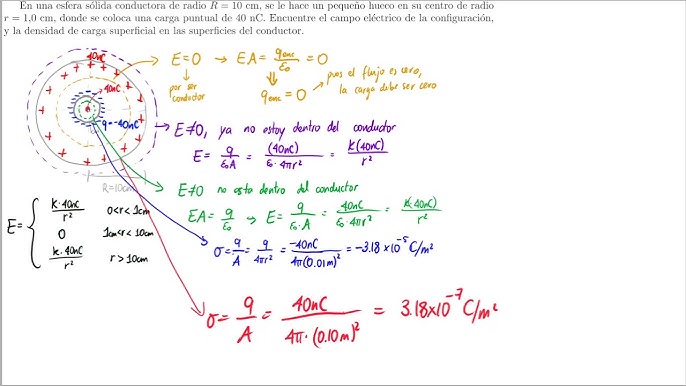 En una esfera sólida conductora de radio R = 10 cm, se le hace un pequeño hueco en su centro de radio
r = 1,0 cm, donde se coloca una carga puntual de 40 nC. Encuentre el campo eléctrico de la configuración,
y la densidad de carga superficial en las superficies del conductor.
40nC
40nC
q=-40nC
R=10cm
E=0 → EA = qenc/ε0 = 0
por ser
conductor
qenc = 0
pues el flujo es cero,
la carga debe ser cero
E≠0, ya no estoy dentro del conductor
E = q/(ε0A) = (40nC)/(ε0·4πr²) = k(40nC)/r²
E≠0 no esta dentro del conductor
EA = q/ε0 → E = q/(ε0·A) = 40nC/(ε0·4πr²) = k(40nC)/r²
E = { k·40nC/r² 0<r<1cm
0 1cm<r<10cm
k·40nC/r² r>10cm
σ = q/A = q/4πr² = -40nC/4π(0.01m)² = -3.18×10⁻⁵ C/m²
σ = q/A = 40nC/4π·(0.10m)² = 3.18×10⁻⁷ C/m²